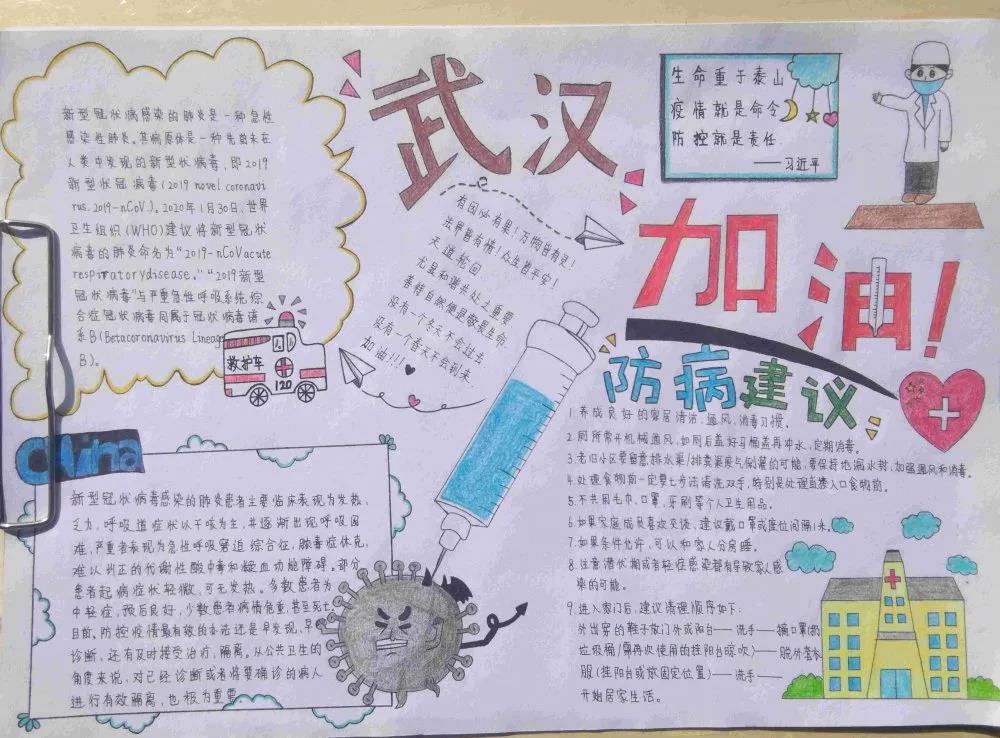 武汉
加油!
新型冠状病感染的肺炎是一种急性
感染性肺炎。其病原体是一种先前未在
人类中发现的新型状病毒,即2019
新型状冠病毒(2019 novel coronavi
rus.2019-nCoV)。2020年1月30日,世界
卫生组织(WHO)建议将新型冠状
病毒的肺炎命名为“2019-nCoVacute
respiratorydisease.”“2019新型
冠状病毒”与严重急性呼吸系统综
合症冠状病毒同属于冠状病毒谱
系B(Betacoronavirus Lineage
B)。
救护车
120
有因必有果!万物皆有灵!
法界皆有情!众生皆平安!
天道轮回
尤显和谐共处之重要
善待自然便是敬畏生命
没有一个冬天不会过去
没有一个春天不会到来
加油!!!
生命重于泰山
疫情就是命令
防控就是责任
——习近平
China
新型冠状病毒感染的肺炎患者主要临床表现为发热、
乏力,呼吸道症状以干咳为主,并逐渐出现呼吸困
难,严重者表现为急性呼吸窘迫综合征,脓毒症休克,
难以纠正的代谢性酸中毒和凝血功能障碍。部分
患者起病症状轻微,可无发热。多数患者为
中轻症,预后良好,少数患者病情危重,甚至死亡
目前,防控疫情最有效的办法还是早发现,早
诊断,还有及时接受治疗,隔离。从公共卫生的
角度来说,对已经诊断或者将要确诊的病人
进行有效隔离,也极为重要
防病建议
1.养成良好的家居清洁、通风、消毒习惯。
2.厕所常开机械通风,如厕后盖好马桶盖再冲水,定期消毒。
3.老旧小区要留意排水渠/排粪渠废气倒灌的可能,要保持地漏水封,加强通风和消毒。
4.处理食物前一定要七步法清洗双手,特别是处理直接入口食物前。
5.不共用毛巾、口罩、牙刷等个人卫生用品。
6.如果家庭成员喜欢交谈,建议戴口罩或座位间隔1米。
7.如果条件允许,可以和家人分房睡。
8.注意潜伏期或者轻症感染都有导致家人感
染的可能。
9.进入家门后,建议清理顺序如下:
外出穿的鞋子放门外或阳台——洗手——摘口罩(扔
垃圾桶/需再次使用的挂阳台晾吹)——脱外套衣
服(挂阳台或放固定位置)——洗手——
开始居家生活。